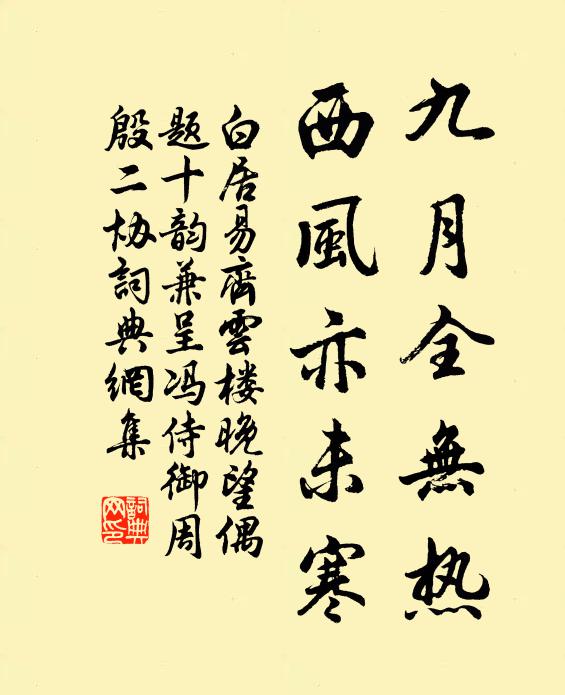 九月全無热
西風亦未寒
白居易齊雲楼晚望偶
题十韵兼呈冯侍御周
殷二协詞典網集
詞典網印